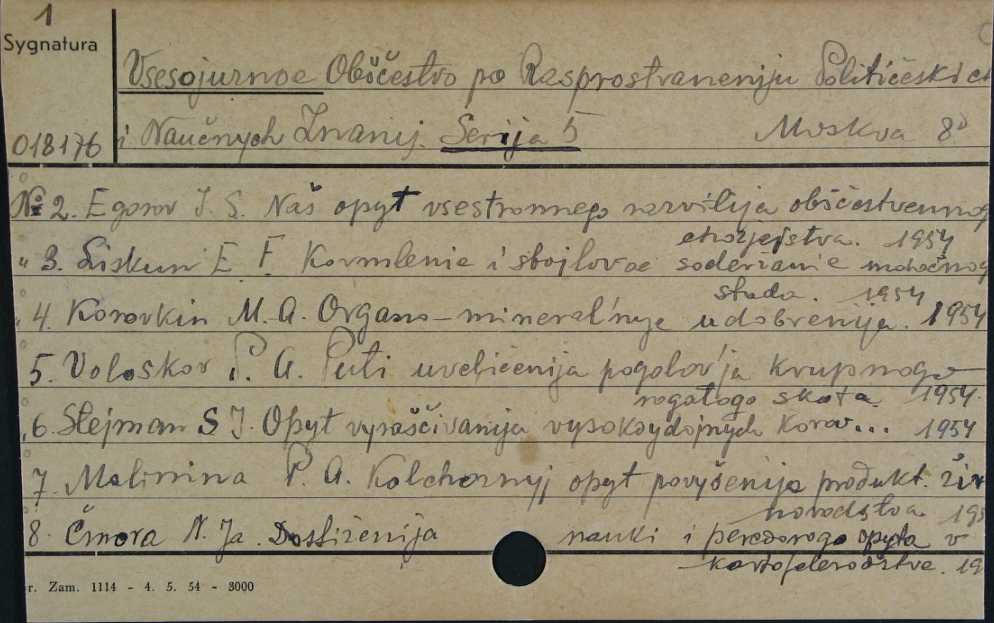 1
Sygnatura
Vsesojuznoe Obščestvo po Rasprostraneniju Političeskich
i Naučnych Znanij. Serija 5 Moskva 8°
018176
№ 2. Egorov I. S. Naš opyt vsestronnego razvitija obščestvennog
chozjajstva. 1954
" 3. Liskun E F. Kormlenie i stojlovoe soderžanie moločnog
stada. 1954
" 4. Korovkin M. A. Organo-mineral'nye udobrenija. 1954
5. Voloskov P. A. Puti uveličenija pogolov'ja krupnogo
rogatogo skota 1954.
" 6. Štejman S I. Opyt vyraščivanija vysokoudojnych korov... 1954
7. Malinina P. A. Kolchoznyj opyt povyšenija produkt. živ
novodstva 195
8. Čmora N. Ja. Dostiženija nauki i peredovogo opyta v
kartofelevodstve. 19
r. Zam. 1114 - 4. 5. 54 - 3000